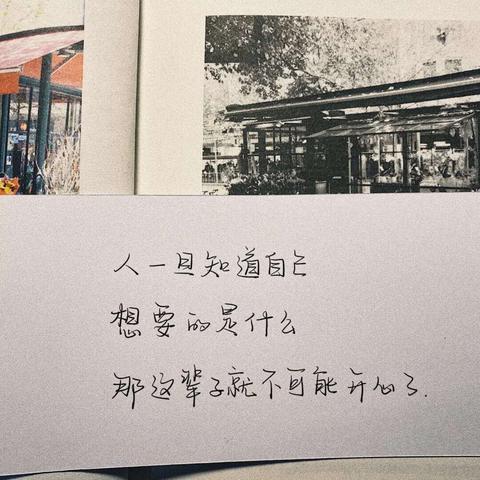 人一旦知道自己
想要的是什么
那这辈子就不可能开心了.